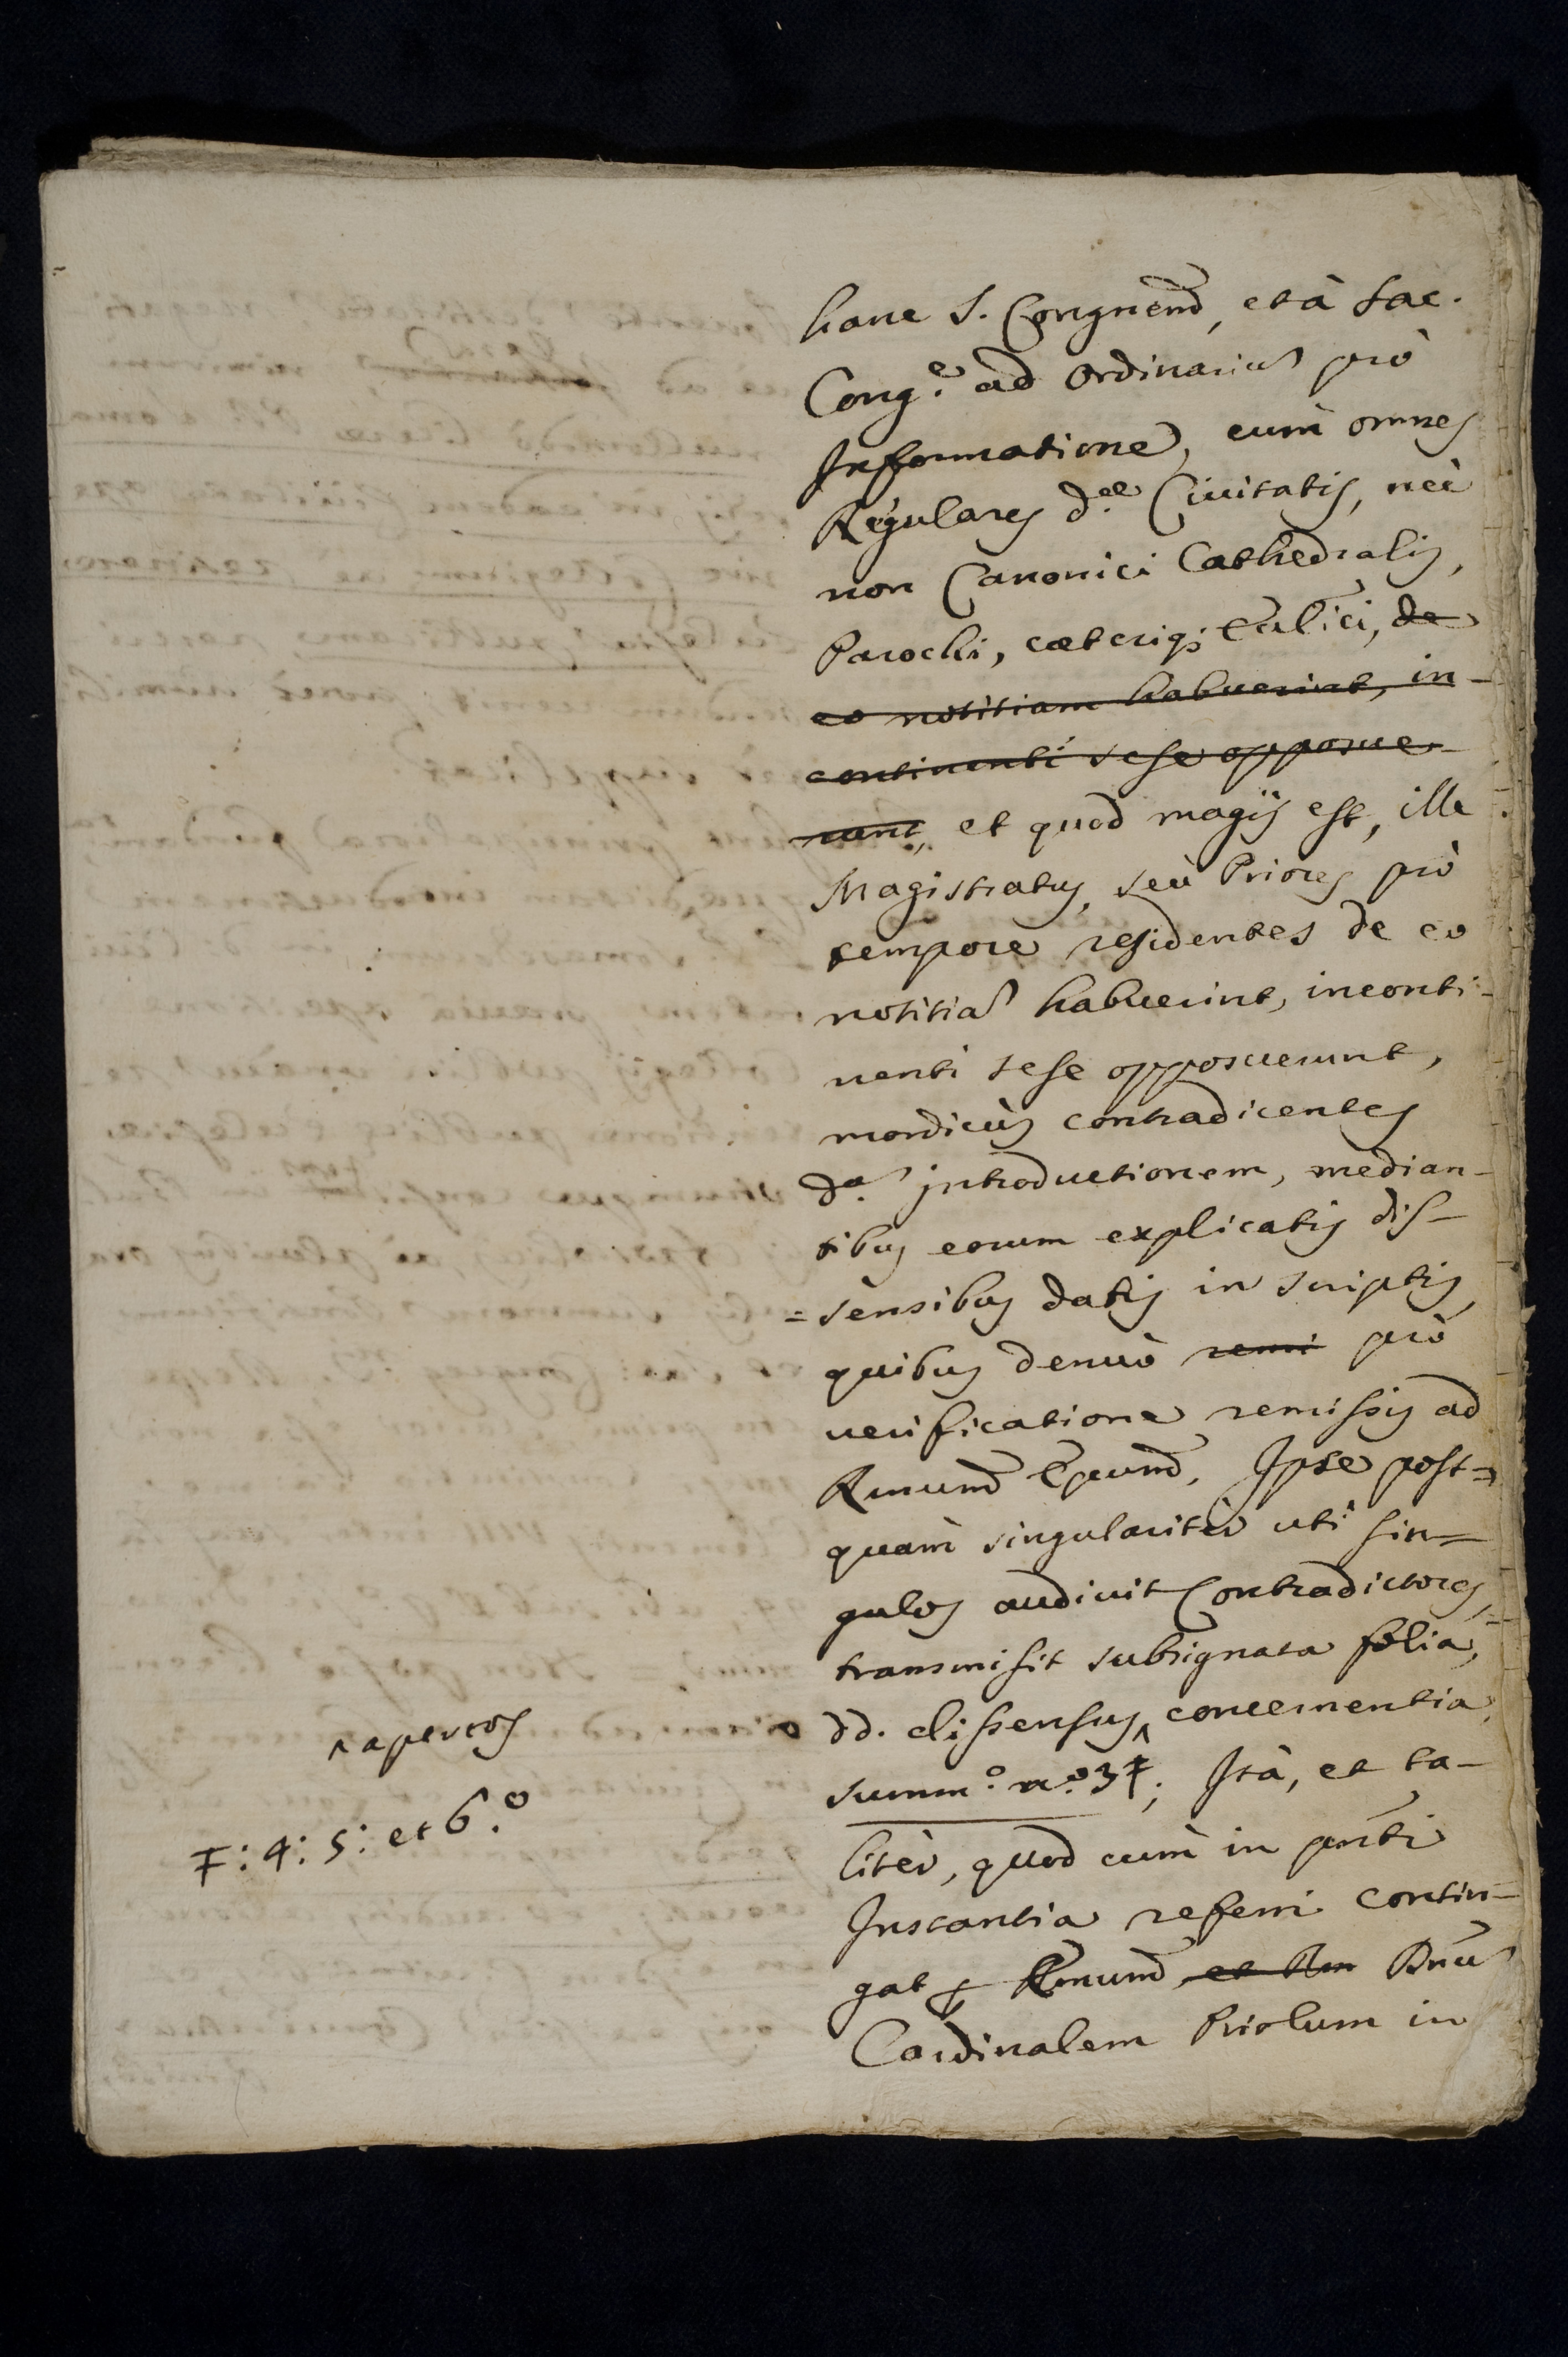 hanc S. Congnem, et à sac.
Cong.e ad Ordinariũ prò
Informatione, cum omnes
Regulares d.ae Ciuitatis, nec
non Canonici Cathedralis,
Parochi, caeteriq; de
eo notitiam habuerint, in-
continenti sese opposue-
runt, et quod magis est, ille
Magistratus, seù Priores prò
tempore residentes de eo
notitiã habuerint, inconti-
nenti sese opposuerunt,
mordicùs contradicentes
d.ã introductionem, median-
tibus eorum explicatis dis-
=sensibus datis in scriptis,
quibus denuò remi prò
uerificatione remissis ad
Rmum Epum, Ipse post=
quàm singularitèr uti sin=
gulos audiuit Contradictores,
transmisit subsignata folia,
dd. dissensus ^ concernentia,
^ apertos
summ.o n.o 3 Ŧ; Ità, et ta-
Ŧ: 4: 5: et 6.o
litèr, quod cum in pnti
Instantia referri contin=
gat p Emum et Rm Dnũ
Cardinalem Priolum in